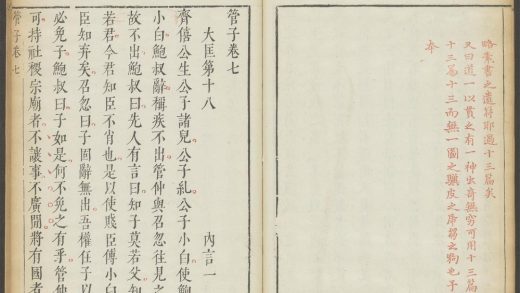 之遺符耶過十三篇矣
又曰道一以貫之有一神出奇無窮可用十三
十三篇十三而無一圖之驥皮之虎芻之狗也予
管子卷七
大匡第十八 內言一
齊僖公生公子諸兒公子糺公子小白使鮑
小白鮑叔辭稱疾不出管仲與召忽往見之
故不出鮑叔曰先人有言曰知子莫若父知
若君今君知臣不肖也是以使賤臣傅小白
臣知弃矣召忽曰子固辭無出吾權任子以
必免子鮑叔曰子如是何不免之有乎管仲
可持社稷宗廟者不讓事不廣閒將有國者
管子卷七